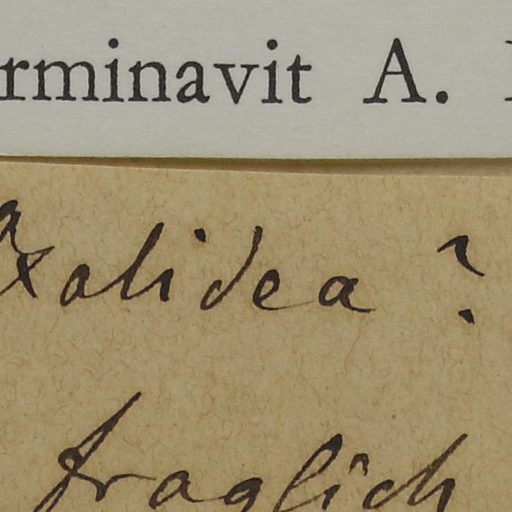 rminavit A.
oxalidea ?
fraglich